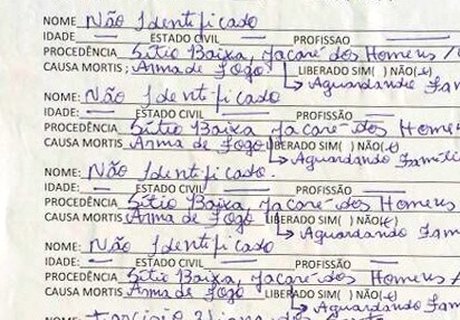 NOME Não Identificado
IDADE: — ESTADO CIVIL — PROFISSÃO —
PROCEDÊNCIA Sítio Baixa, Jacaré dos Homens /
CAUSA MORTIS: Arma de Fogo LIBERADO SIM( ) NÃO(x)
↳ Aguardando Fam
NOME: Não Identificado
IDADE: — ESTADO CIVIL — PROFISSÃO —
PROCEDÊNCIA Sítio Baixa Jacaré-dos Homens
CAUSA MORTIS Arma de Fogo LIBERADO SIM( ) NÃO(x)
↳ Aguardando Famíli
NOME: Não Identificado.
IDADE: — ESTADO CIVIL — PROFISSÃO —
PROCEDÊNCIA Sítio Baixa, Jacaré dos Homens
CAUSA MORTIS Arma de Fogo LIBERADO SIM( ) NÃO(x)
↳ Aguardando Fam
NOME: Não Identificado
IDADE: — ESTADO CIVIL — PROFISSÃO —
PROCEDÊNCIA Sítio Baixa, Jacaré-dos Homens /
CAUSA MORTIS Arma de Fogo LIBERADO SIM( ) NÃO(x)
↳ Aguardando Fam
NOME: